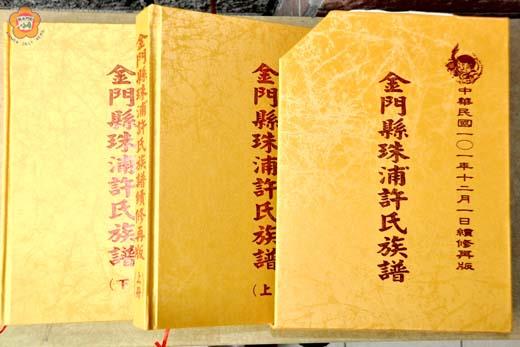 金門縣珠浦許氏族譜
（下
金門縣珠浦許氏族譜續修再版
金門縣珠浦許氏族譜
（上
中華民國一〇一年十二月一日續修再版
金門縣珠浦許氏族譜